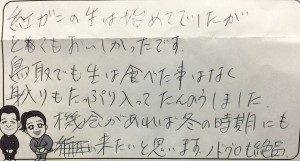 紅ガニの生は始めてでしたが
とてもおいしかったです。
鳥取でも生は食べた事はなく
身入りもたっぷり入ってたんのうしました。
機会があれば冬の時期にも
来たいと思います。ノドグロも絶品